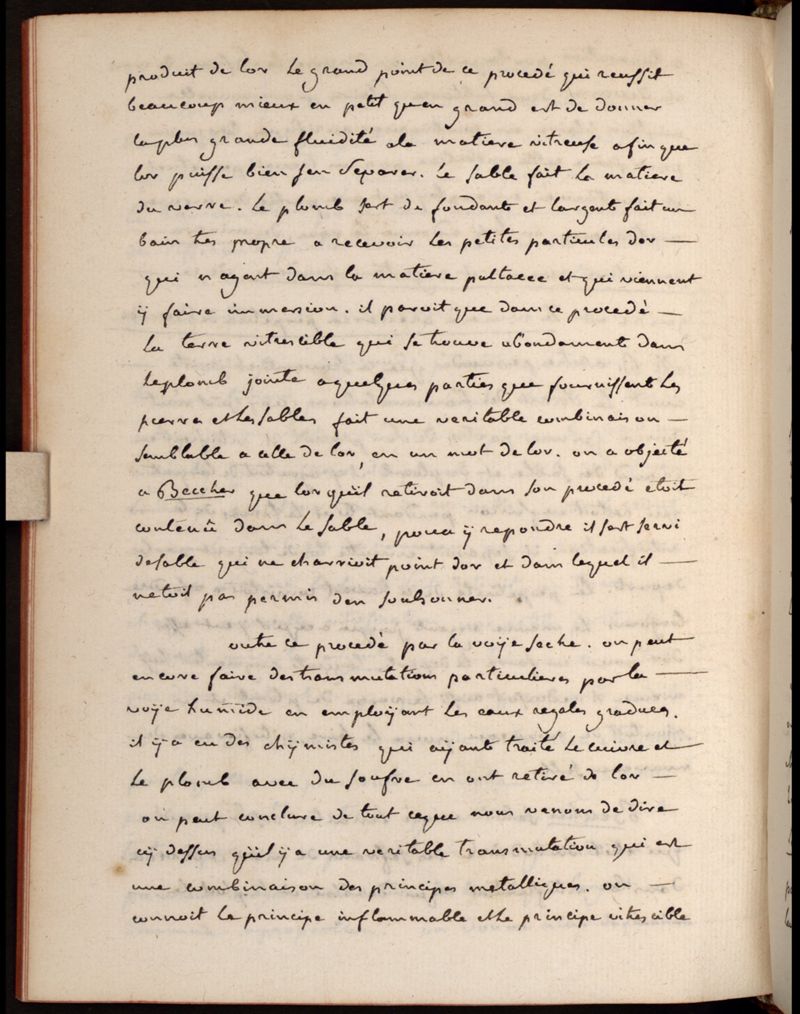 produit de lor Le grand point de ce procedé qui reussit
beaucoup mieux en petit quen grand est de donner
laplus grande fluidité ala matiere vitreuse afinque
lor puisse bien sen separer. Le sable fait la matiere
du verre. Le plomb sert de fondant et largent fait un
bain tres propre a recevoir les petites particules dor —
qui nagent dans la matiere pultacee et qui viennent
ÿ faire immersion. il paroit que dans ce procedé —
La terre vitrescible qui se trouve abondament dans
Leplomb jointe aquelques parties que fournissent Les
pierres et Les sables fait une veritable combinaison —
semblable a celle de lor, en un mot de lor. on a objecté
a Beccher que lor quil retiroit dans son procedé etoit
contenû dans Le sable, pour ÿ repondre il sest servi
desable qui ne charrioit point dor et dans lequel il —
netoit pas permis den soubsonner.
outre ce procedé par la voÿe seche. on peut
encore faire des transmutations particulieres par la —
voÿe humide en emploÿant Les eaux regales graduees.
il ÿ a eu des chÿmistes qui aÿant traité Le cuivre et
Le plomb avec du soufre en ont retiré de lor —
on peut conclure de tout ceque nous venons de dire
cÿ dessus quil ÿ a une veritable transmutation qui est
une combinaison des principes metalliques. on —
connoit Le principe inflammable et Le principe vitrescible